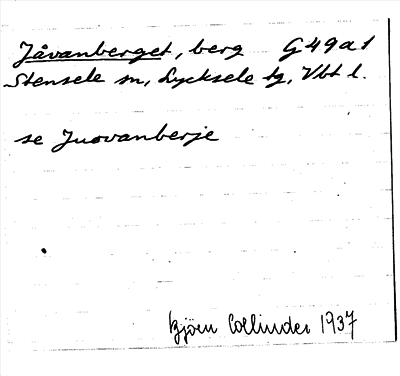 Jåvanberget, berg G 49 a 1
Stensele sn, Lycksele tg, Vbt l.
se Juovanberje
Björn Collinder 1937